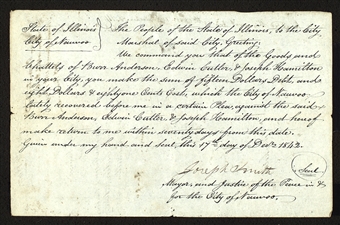 State of Illinois } The People of the State of Illinois, to the City
City of Nauvoo } Marshal of said City, Greeting:
We command you that of the Goods and
Chattels of Burr Anderson, Edwin Cutler & Joseph Hamilton
in your City, you make the sum of fifteen Dollars Debt, and
eight Dollars & eighty one Cents Cost, which the City of Nauvoo
lately recovered before me in a certain Plea, against the said
Burr Anderson, Edwin Cutler & Joseph Hamilton, and hereof
make return to me within seventy days from this date.
Given under my hand and seal, this 17th day of Decr. 1842.
Joseph Smith Seal
Mayor, and Justice of the Peace in &
for the City of Nauvoo.